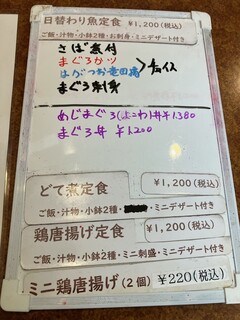 日替わり魚定食 ￥1,200(税込)
ご飯・汁物・小鉢2種・お刺身・ミニデザート付き
さば煮付
まぐろカツ
はがつお竜田揚 >チョイス
まぐろ刺身
めじまぐろ(よこわ)丼￥1,380
まぐろ丼 ￥1,200
どて煮定食 ￥1,200(税込)
ご飯・汁物・小鉢2種・ミニデザート付き
鶏唐揚げ定食 ￥1,200(税込)
ご飯・汁物・小鉢2種・ミニ刺盛・ミニデザート付き
ミニ鶏唐揚げ(2個) ￥220(税込)